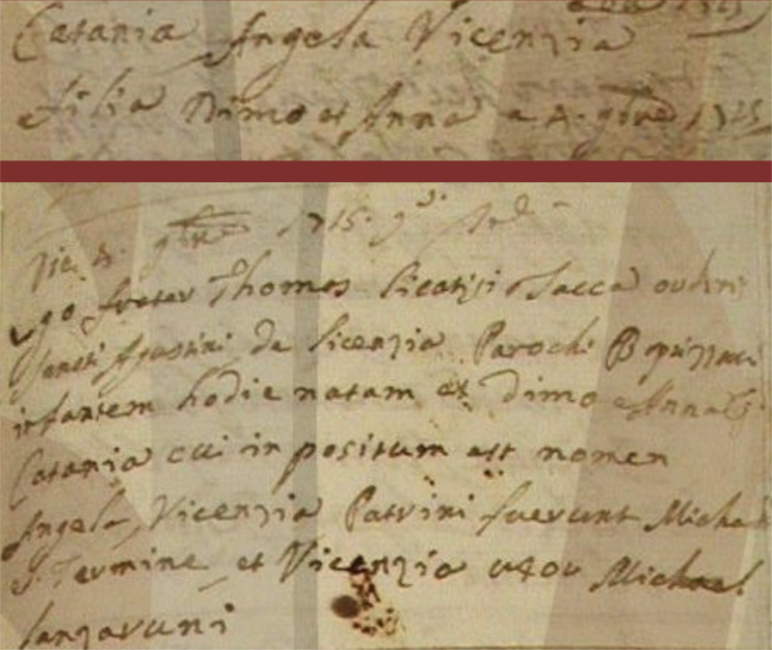 Catania Angela Vicenzia
filia Dimo et Anna a 4. 9bre 1715
Die 4. 9bre 1715. 9e Ind.
Ego frater Thomas Sacca ordini
Sancti Agustini de licenzia Parochi Baptizzavi
infantem hodie natam ex Dimo e Anna
Catania cui in positum est nomen
Angela, Vicenzia Patrini fuerunt Michael
di Termine et Vicenzia uxor Michael
lanzaruni